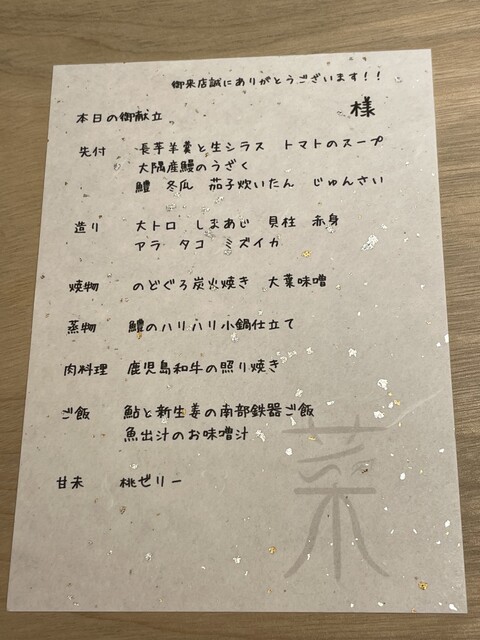 御来店誠にありがとうございます！！
様
本日の御献立
先付 長芋羊羹と生シラス トマトのスープ
大隅産鰻のうざく
鱧 冬瓜 茄子炊いたん じゅんさい
造り 大トロ しまあじ 貝柱 赤身
アラ タコ ミズイカ
焼物 のどぐろ炭火焼き 大葉味噌
蒸物 鱧のハリハリ小鍋仕立て
肉料理 鹿児島和牛の照り焼き
ご飯 鮎と新生姜の南部鉄器ご飯
魚出汁のお味噌汁
甘未 桃ゼリー
菜